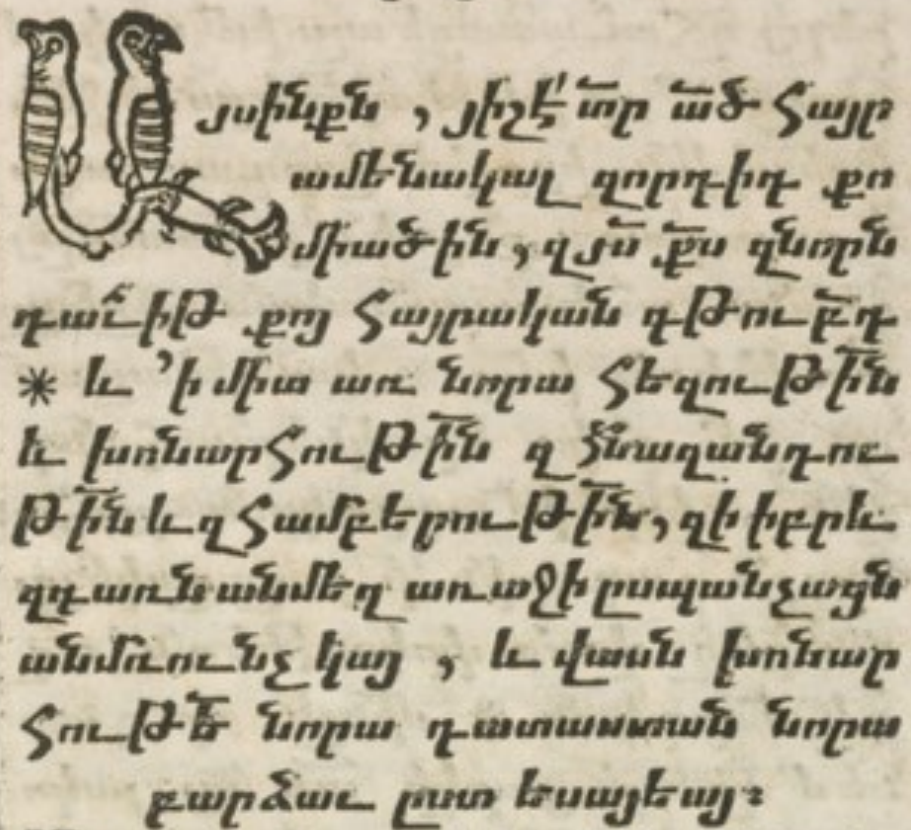 Այսինքն , յիշէ՛ տ՟ր ա՟ծ հայր
ամենակալ զորդիդ քո
միածին , զյ՟ս ք՟ս զնորն
դաւիթ քոյ հայրական գթու՟բդ
* և ՚ի միտ առ նորա հեզութի՟ն
և խոնարհութի՟ն զ հնազանդու
թի՟ն և զ համբերութի՟ն, զի իբրև
զգառն անմեղ առաջի ըսպանչացն
անմռունչ կայ , և վասն խոնար
հութե՟ նորա դատաստան նորա
բարձաւ ըստ եսայեայ։